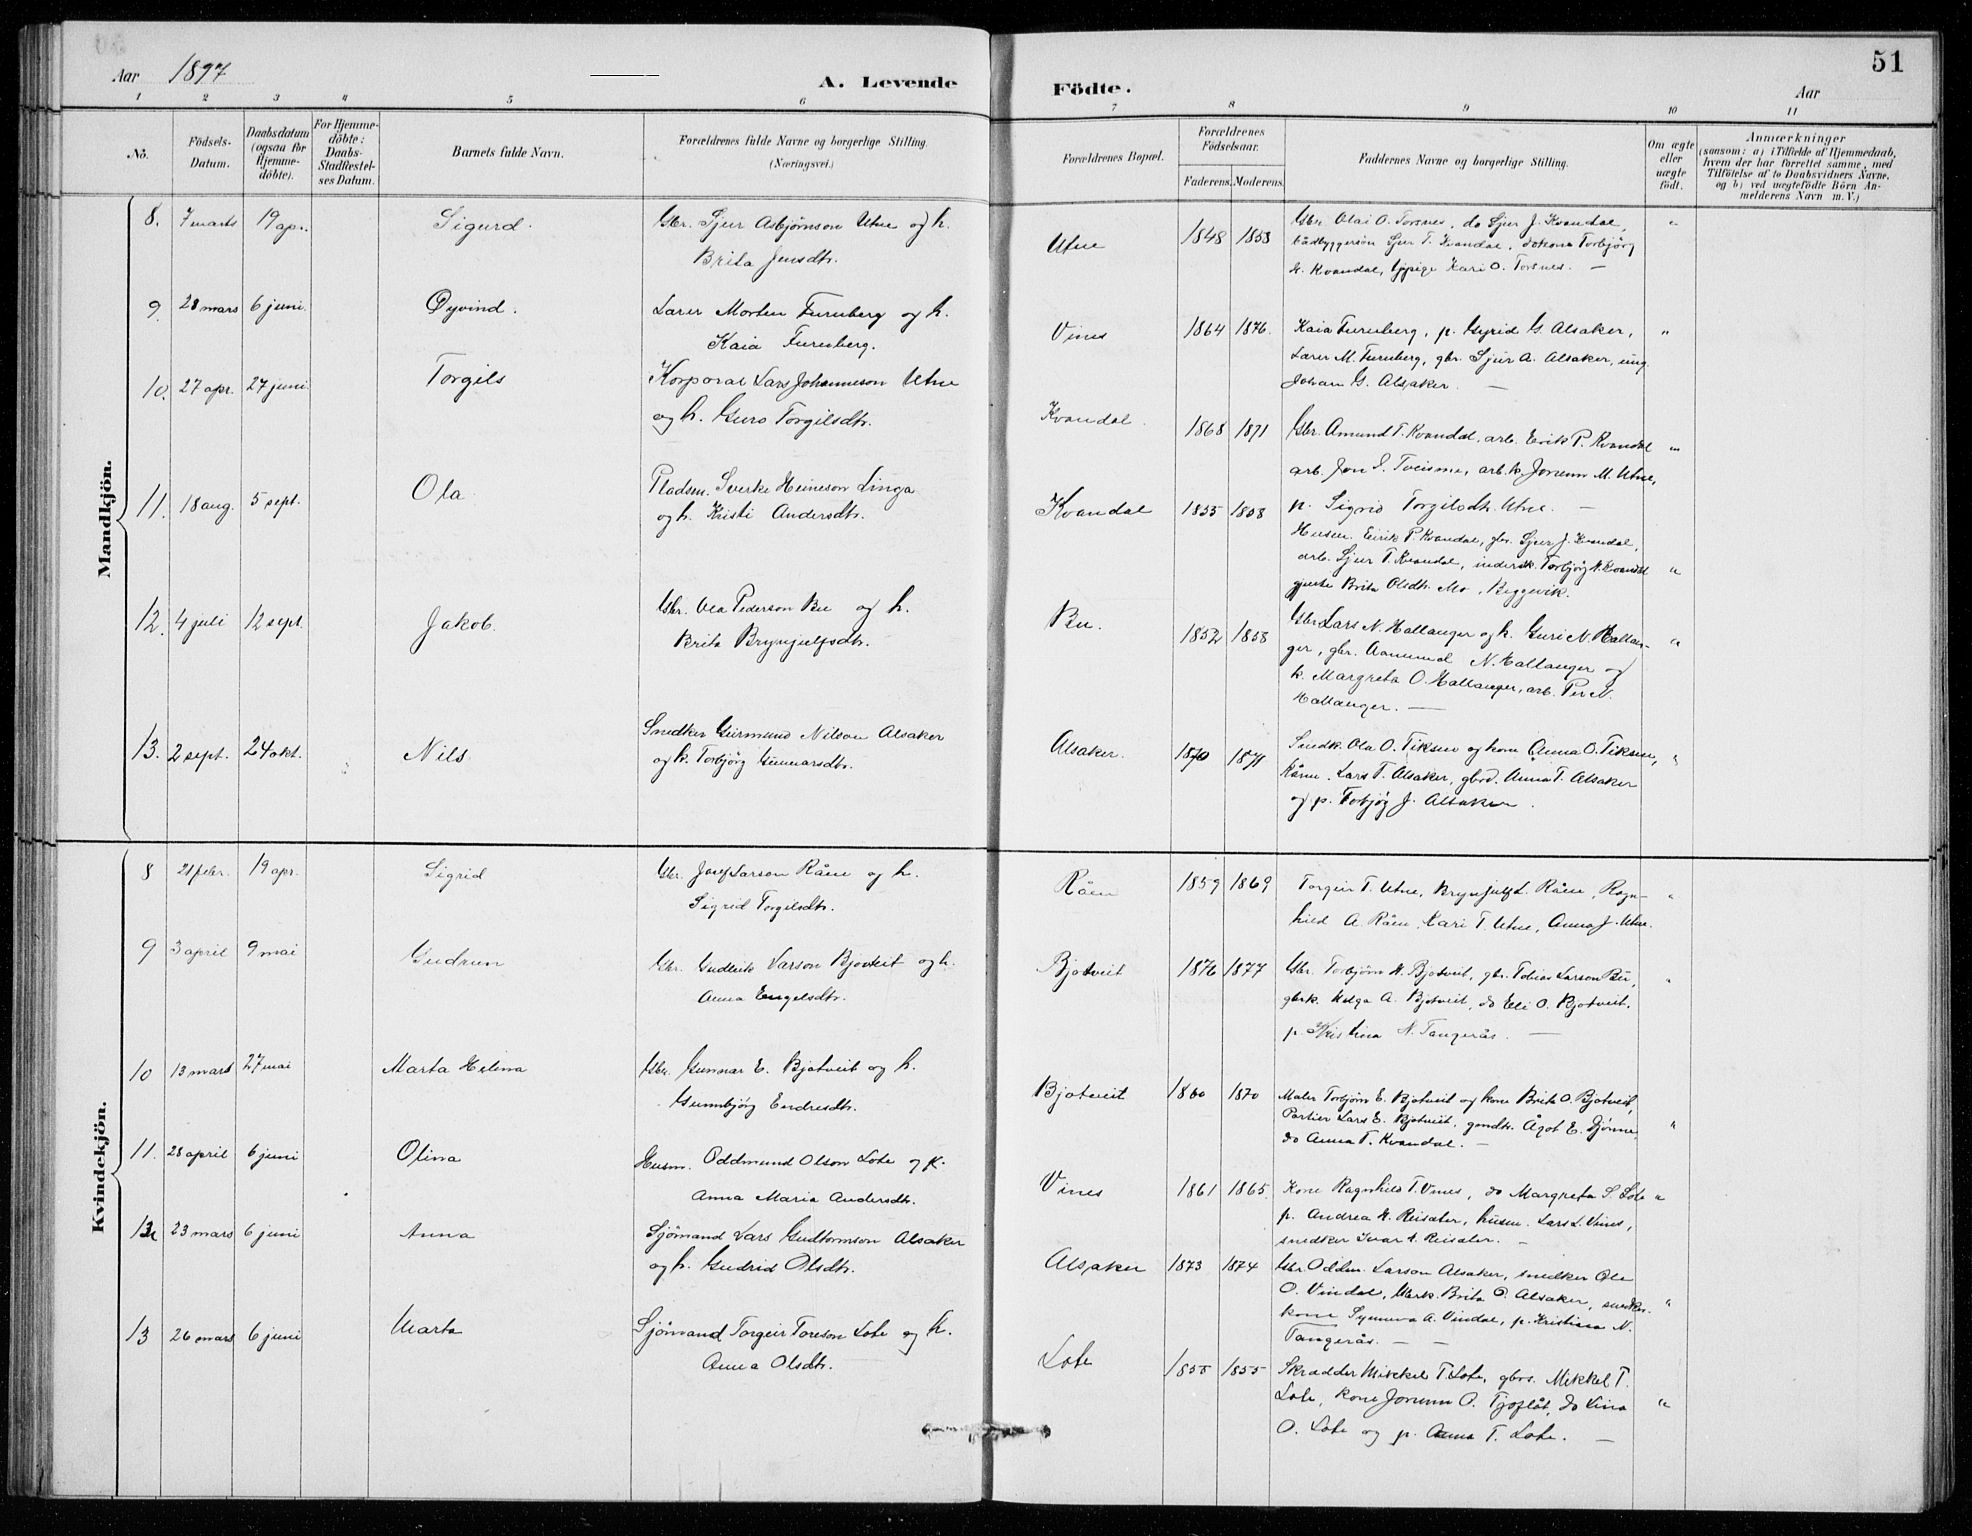 Aar 1897
A. Levende Fødte.
Aar
51
1 2 3 4 5 6 7 8 9 10 11
No.
Fødsels-Datum.
Daabsdatum (ogsaa for Hjemme-døbte).
For Hjemme-døbte: Daabs-Stadfæstel-ses Datum.
Barnets fulde Navn.
Forældrenes fulde Navne og borgerlige Stilling. (Næringsvei.)
Forældrenes Bopæl.
Forældrenes Fødselsaar.
Faderens. Moderens.
Faddernes Navne og borgerlige Stilling.
Om ægte eller uægte født.
Anmærkninger
(saasom: a) i Tilfælde af Hjemmedaab,
hvem der har forrettet samme, med
Tilføielse af to Daabsvidners Navne,
og b) ved uægtefødte Børn An-
melderens Navn m. V.)
Mandkjøn.
8. 7 marts 19 apr. Sigurd. Gbr. Sjur Asbjørnson Utne og h.
Brita Jensdtr.
Utne 1848 1853 Gbr. Olai O. Torsnes, do Sjur J. Kvandal, "
bådbyggersøn Sjur T. Kvandal, Torbjørg
K. Kvandal, Kari O. Torsnes. —
9. 28 mars 6 juni. Øyvind. Lærer Morten Furuberg og h.
Kaia Furuberg.
Vines 1864 1876. Kaia Furuberg, p. Gyrid G. Alsaker, "
Lærer M. Furuberg, gbr. Sjur A. Alsaker, ung.
Johan G. Alsaker. —
10. 27 apr. 27 juni. Torgils Korporal Lars Johanneson Utne
og h. Guro Torgilsdtr.
Kvandal. 1868 1871 Gbr. Amund T. Kvandal, arb. Eirik P. Kvandal "
arb. Jon S. Tveisme, arb.k. Jorunn M. Utne,
p. Sigrid Torgilsdtr. Utne. —
11. 18 aug. 5 sept. Ola Pladsm. Sverke Heineson Linga
og h. Kristi Andersdtr.
Kvandal 1855 1858
Husm. Eirik P. Kvandal, gbr. Sjur J. Kvandal,
arb. Sjur T. Kvandal, Torbjørg N. Kvandal "
gjente Brita Olsdtr. Mo, Biggevik.
12. 4 juli 12 sept. Jakob. Gbr. Ola Pederson Bu og h.
Brita Brynjulfsdtr.
Bu. 1852 1858 Gbr Lars N. Hallanger og h. Guri N. Hallan- "
ger, gbr. Aamund N. Hallanger og
h. Margreta O. Hallanger, arb. Per N.
Hallanger. —
13. 2 sept. 24 okt. Nils. Snedker Geirmund Nilson Alsaker
og h. Torbjørg Gunnarsdtr.
Alsaker. 1870 1871 Snedk. Ola O. Tiksen og kone Anna O. Tiksen, "
Råen. Lars T. Alsaker, Anna T. Alsaker
og p. Torbjørg J. Alsaker.
Kvindekjøn.
8 21 febr. 19 apr. Sigrid Gbr. Josef Larson Råen og h.
Sigrid Torgilsdtr.
Råen 1859 1869 Torgeir T. Utne, Brynjulf L. Råen, Ragn- "
hild A. Råen, Kari T. Utne, Anna J. Utne.
9 3 april 9 mai Gudrun Gbr. Gudleik Larson Bjotveit og h.
Anna Engelsdtr.
Bjotveit 1876 1877 Gbr. Torbjørn H. Bjotveit, gbr. Tobias Larson Bu, "
gbrk. Helga A. Bjotveit, do Eli O. Bjotveit,
p. Kristina N. Tangerås. —
10 13 mars 27 mai Marta Helina Gbr. Gunnar E. Bjotveit og h.
Gunnbjørg Endresdtr.
Bjotveit 1860 1870 Maler Torbjørn E. Bjotveit og kone Brita O. Bjotveit,
Lars E. Bjotveit, Ågot E. Djønne, "
do Anna T. Kvandal. —
11. 28 april 6 juni Olina Husm. Oddmund Olson Lote og k.
Anna Maria Andersdtr.
Vines 1861 1865. Kone Ragnhild T. Vines, do Margreta S. Lote "
p. Andrea H. Reisæter, husm. Lars L. Vines,
snedker Ivar A. Reisæter. —
12 23 mars 6 juni Anna Sjømand Lars Guttormson Alsaker
og h. Gudrid Olsdtr.
Alsaker 1873 1874 Gbr. Oddm. Larson Alsaker, snedker Ole
O. Vindal, Brita O. Alsaker, snedker- "
kone Synneva A. Vindal, p. Kristina N.
Tangerås. — —
13 26 mars 6 juni Marta Sjømand Torgeir Toreson Lote og h.
Anna Olsdtr.
Lote 1855 1855 Skrædder Mikkel T. Lote, gbrs. Mikkel T.
Lote, kone Jorunn O. Tjoflåt, do Lina "
O. Lote og p. Anna T. Lote. —